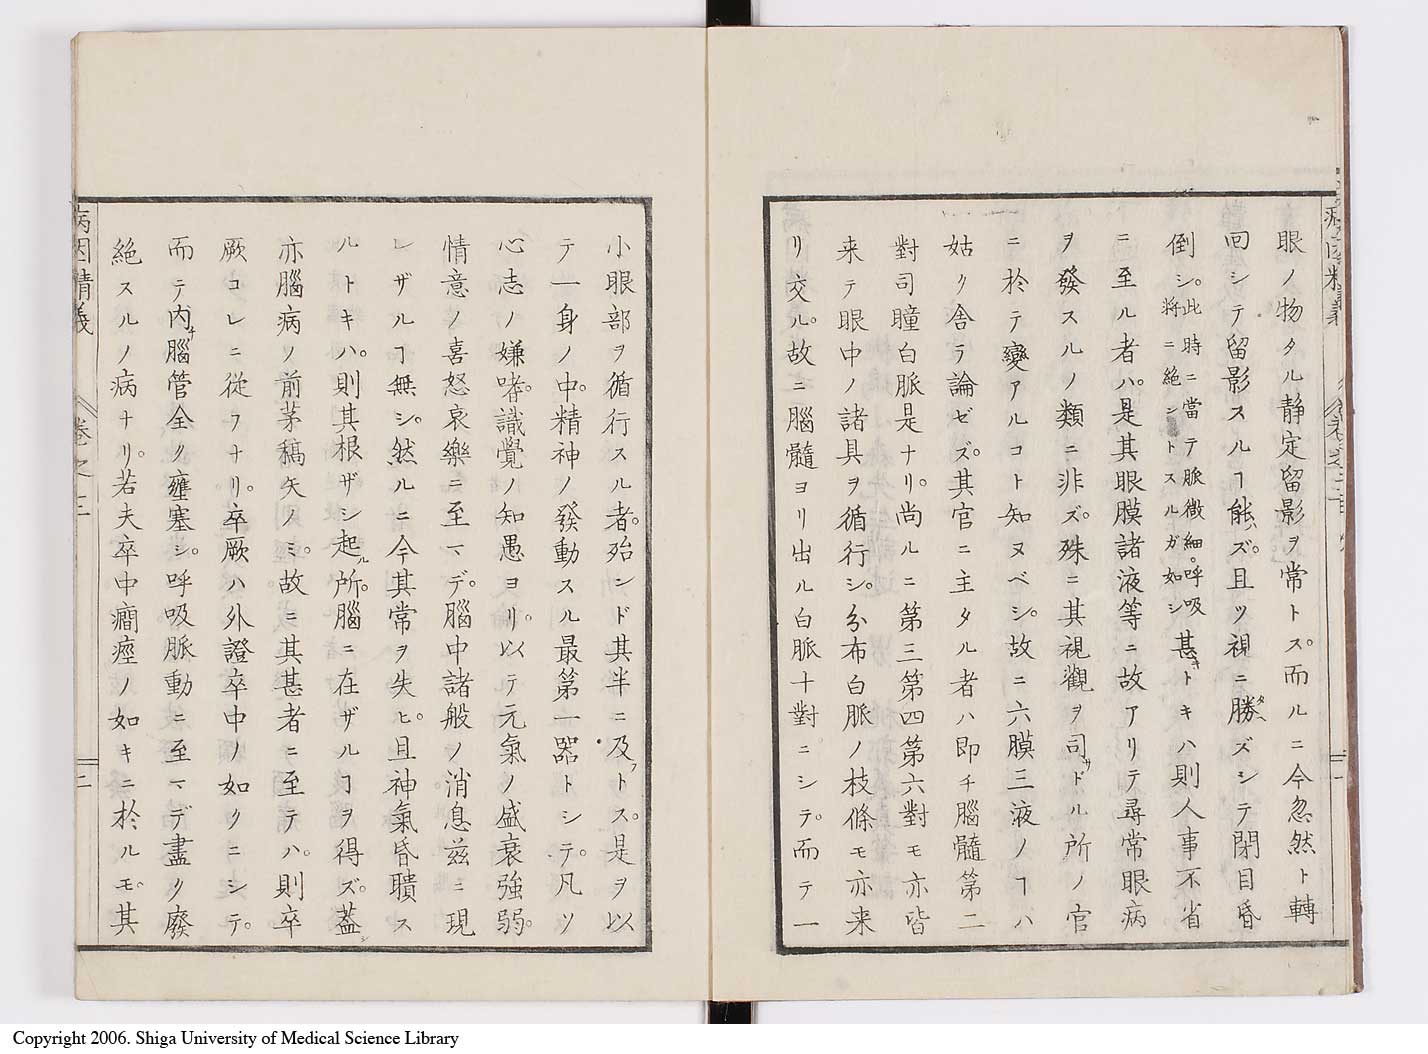 眼ノ物タル静定留影ヲ常トス。而ルニ今忽然ト轉
回シテ留影スルヿ能ハズ。且ツ視ニ勝ヘズシテ閉目昏
倒シ。此時ニ當テ脈微細。呼吸
将ニ絶シ トスルガ如シ
甚キトキハ則人事不省
ニ至ル者ハ。是其眼膜諸液等ニ故アリテ尋常眼病
ヲ發スルノ類ニ非ズ。殊ニ其視觀ヲ司サドル所ノ官
ニ於テ變アルコト知ヌベシ。故ニ六膜三液ノヿハ
姑ク舎テ論ゼズ。其官ニ主タル者ハ即チ腦髓第二
對司瞳白脈是ナリ。尚ルニ第三第四第六對モ亦皆
来テ眼中ノ諸具ヲ循行シ。分布白脈ノ枝條モ亦来
リ交ル。故ニ腦髓ヨリ出ル白脈十對ニシテ。而テ一
小眼部ヲ循行スル者。殆ンド其半ニ及フトス。是ヲ以
テ一身ノ中。精神ノ發動スル最第一器トシテ。凡ソ
心志ノ嫌嗜。識覺ノ知愚ヨリ。以テ元氣ノ盛衰強弱。
情意ノ喜怒哀樂ニ至マデ。腦中諸般ノ消息茲ニ現
レザルヿ無シ。然ルニ今其常ヲ失ヒ。且神氣昏聵ス
ルトキハ。則其根ザシ起ル所。腦ニ在ザルヿヲ得ズ。葢
亦腦病ノ前茅稿矢ノミ。故ニ其甚者ニ至テハ。則卒
厥コレニ從フナリ。卒厥ハ外證卒中ノ如クニシテ。
而テ内腦管全ク壅塞シ。呼吸脈動ニ至マデ盡ク廢
絶スルノ病ナリ。若夫卒中癇痙ノ如キニ於ルモ。其
病因精義 卷之二 二